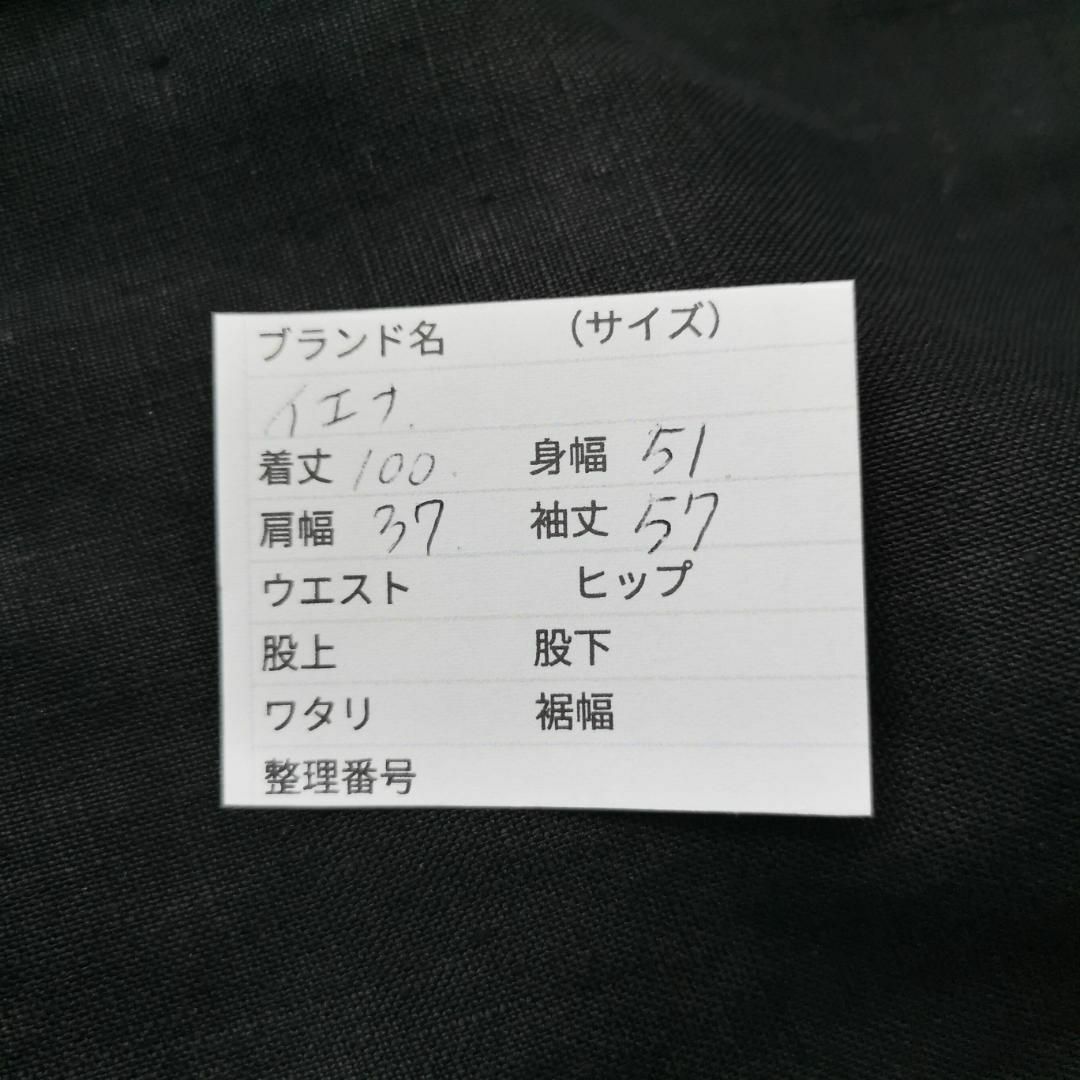 ブランド名 (サイズ)
イエナ.
着丈 100. 身幅 51.
肩幅 37. 袖丈 57
ウエスト ヒップ
股上 股下
ワタリ 裾幅
整理番号